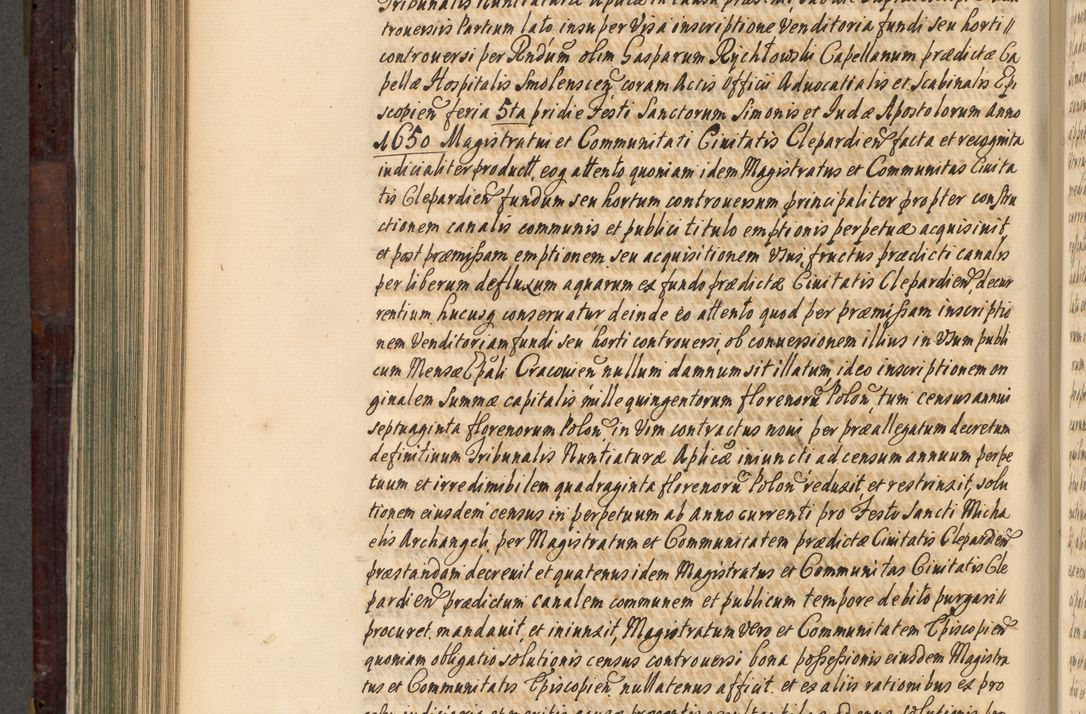 troversiis Partium lato insuper Visa inscriptione Venditoria fundi seu horti
controversi per Rndum olim Gasparum Rychłowski Capellanum prædictæ Ca
pellæ Hospitalis Smolenscen coram Actis Officii Advocatialis et Scabinalis Epi
scopien feria 5ta pridie Festi Sanctorum Simonis et Judæ Apostolorum Anno
1650 Magistratui et Communitati Civitatis Clepardien facta et recognita
iudicialiter product, eoq attento quoniam idem Magistratus et Communitas Civita
tis Clepardien fundum seu hortum controversum principaliter propter constru
ctionem canalis communis et publici titulo emptionis perpetuæ acquisivit,
et post præmissam emptionem seu acquisitionem Usus, fructus prædicti canalis
per liberum defluxum aquarum ex fundo prædictæ Civitatis Clepardien decur
rentium hucusq conservatur deinde eo attento quod per præmissam inscriptio
nem Venditoriam fundi seu horti controversi, ob conversionem illius in Usum publi
cum Mensæ Epali Cracovien nullum damnum sit illatum ideo inscriptionem ori
ginalem Summæ capitalis mille quingentorum florenoru Polon, tum census annui
septuaginta florenorum Polon in Vim contractus novi per præallegatum decretum
definitivum Tribunalis Nuntiaturæ Aplicæ iniuncti ad censum annuum perpe
tuum et irredimibilem quadraginta florenoru Polon reduxit, et restrinxit, solu
tionem eiusdem census in perpetuum ab Anno currenti pro Festo Sancti Micha
elis Archangeli, per Magistratum et Communitatem prædictæ Civitatis Clepardien
præstandam decrevit et quatenus idem Magistratus et Communitas Civitatis Cle
pardien prædictum canalem communem et publicum tempore debito purgari
procuret, mandavit, et iniunxit, Magistratum Vero et Communitatem Episcopien
quoniam obligatio solutionis census controversi bona possessionis eiusdem Magistra
tus et Communitatis Episcopien nullatenus afficit, et ex aliis rationibus ex pro